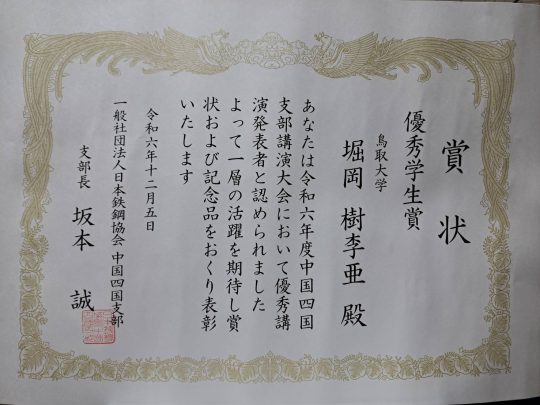 賞状
優秀学生賞
鳥取大学
堀岡 樹李亜 殿
あなたは令和六年度中国四国
支部講演大会において優秀講
演発表者と認められました
よって一層の活躍を期待し賞
状および記念品をおくり表彰
いたします
令和六年十二月五日
一般社団法人日本鉄鋼協会 中国四国支部
支部長 坂本 誠